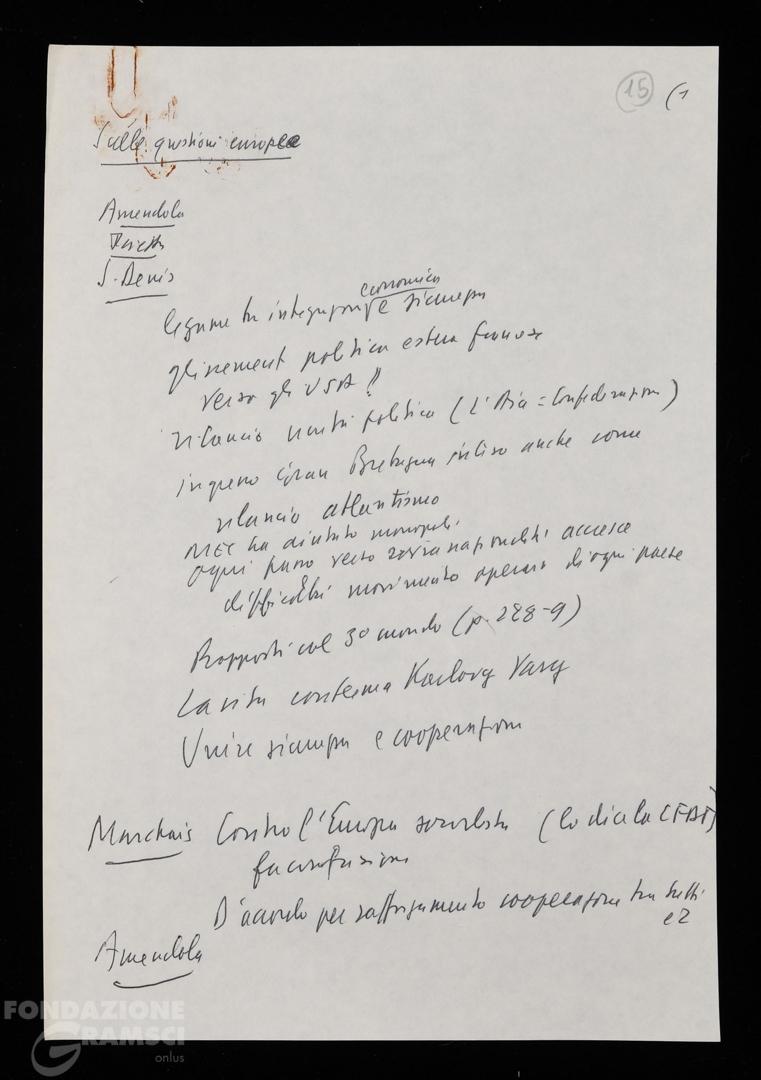 15 (1
Sulle questioni europee
Amendola
Pajetta
S. Denis
legame tra integrazione economica e sicurezza
glissement politica estera francese
verso gli USA !!
rilancio unità politica (L'Aia = Confederazione)
ingresso Gran Bretagna inteso anche come
rilancio atlantismo
MEC ha aiutato monopoli.
Ogni passo verso sovranazionalità accresce
difficoltà movimento operaio di ogni paese
Rapporti col 3º mondo (p. 228-9)
La vita conferma Karlovy Vary
Unire sicurezza e cooperazione
Marchais Contro l'Europa socialista (lo dice la CFDT)
fa confusione
D'accordo per rafforzamento cooperazione tra tutti
e 2
Amendola
FONDAZIONE
GRAMSCI
onlus